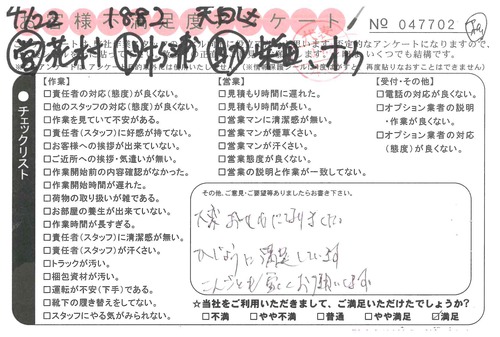 4/22 1882 天白区
お客様満足度アンケート
№ 047702
チェックリスト
【作業】
□責任者の対応(態度)が良くない。
□他のスタッフの対応(態度)が良くない。
□作業を見ていて不安がある。
□責任者(スタッフ)に好感が持てない。
□お客様への挨拶が出来ていない。
□ご近所への挨拶・気遣いが無い。
□作業開始前の内容確認がなかった。
□作業開始時間が遅れた。
□荷物の取り扱いが雑である。
□お部屋の養生が出来ていない。
□作業時間が長すぎる。
□責任者(スタッフ)に清潔感が無い。
□責任者(スタッフ)が汗くさい。
□トラックが汚い。
□梱包資材が汚い。
□運転が不安(下手)である。
□靴下の履き替えをしてない。
□スタッフにやる気がみられない。
【営業】
□見積もり時間に遅れた。
□見積もり時間が長い。
□営業マンに清潔感が無い。
□営業マンが煙草くさい。
□営業マンが汗くさい。
□営業態度が良くない。
□営業の説明と作業が一致してない。
【受付・その他】
□電話の対応が良くない。
□オプション業者の説明
・作業が良くない。
□オプション業者の対応
(態度)が良くない。
その他、ご意見・ご要望等ありましたらお書き下さい。
大変お世わになりました
ひじょうに満足しています
☆当社をご利用いただきまして、ご満足いただけたでしょうか?
□不満 □やや不満 □普通 □やや満足 ☑満足